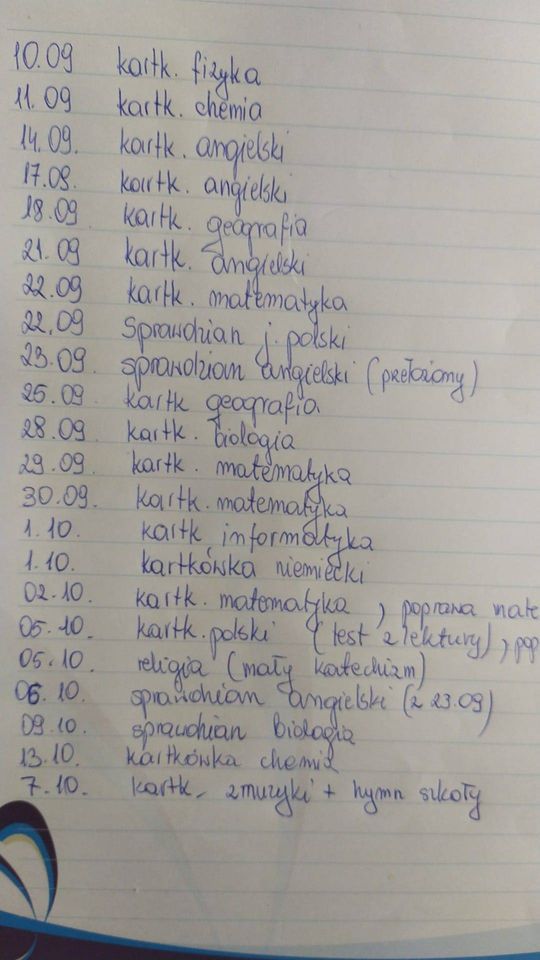 10.09 kartk. fizyka
11.09 kartk. chemia
14.09. kartk. angielski
17.09. kartk. angielski
18.09 kartk. geografia
21.09 kartk. angielski
22.09 kartk. matematyka
22.09 Sprawdzian j. polski
23.09. sprawdzian angielski (przełożony)
25.09. kartk geografia
28.09. kartk. biologia
29.09. kartk. matematyka
30.09. kartk. matematyka
1.10. kartk informatyka
1.10. kartkówka niemiecki
02.10. kartk. matematyka, poprawa mate
05.10. kartk. polski (test z lektury), pop
05.10. religia (mały katechizm)
06.10. sprawdzian angielski (z 23.09)
09.10. sprawdzian biologia
13.10. kartkówka chemia
7.10. kartk - z muzyki + hymn szkoły